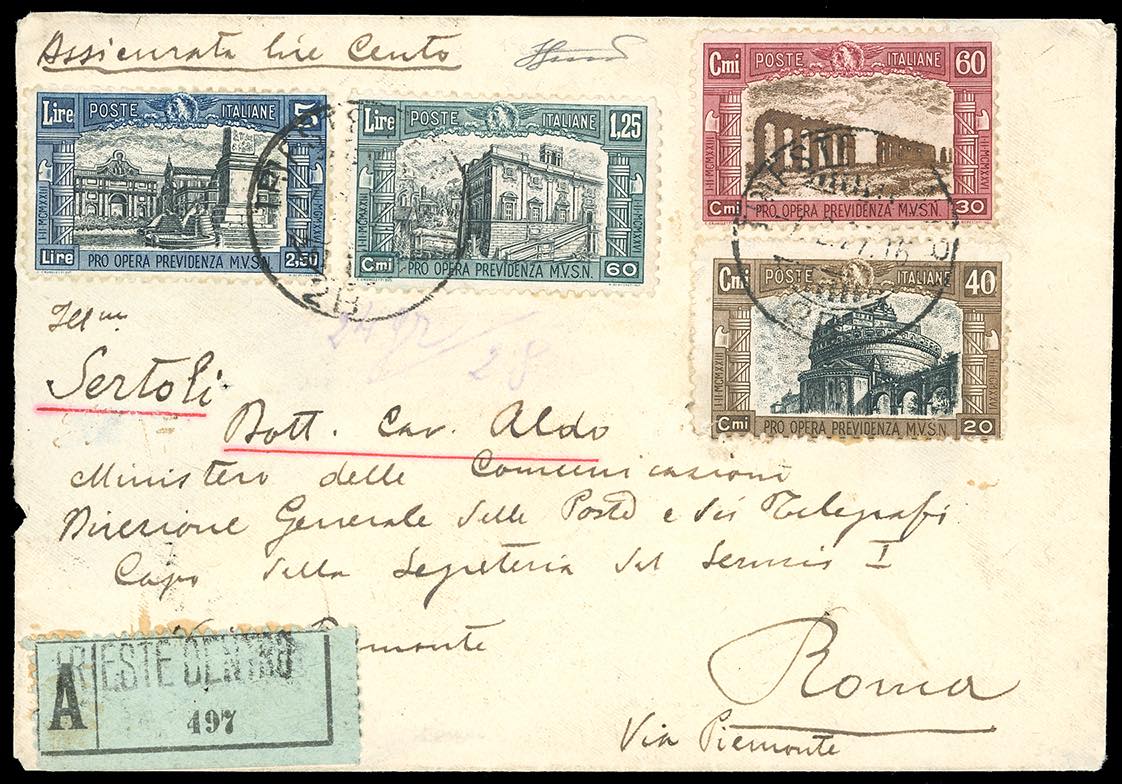 Assicurata lire Cento
Lire POSTE ITALIANE 5
I-II-MCMXXIII
Lire 2,50
PRO OPERA PREVIDENZA M.V.S.N.
Lire POSTE ITALIANE 1,25
I-II-MCMXXIII I-II-MCMXXVI
Cmi 60
PRO OPERA PREVIDENZA M.V.S.N.
Cmi POSTE ITALIANE 60
I-II-MCMXXIII I-II-MCMXXVI
Cmi PRO OPERA PREVIDENZA M.V.S.N. 30
Cmi POSTE ITALIANE 40
I-II-MCMXXIII
Cmi PRO OPERA PREVIDENZA M.V.S.N. 20
Ill mo
Sertoli
Dott. Cav. Aldo
Ministero delle Comunicazioni
Direzione Generale delle Poste e dei Telegrafi
Capo della Segreteria del Servizio I
Piemonte
Roma
Via Piemonte
TRIESTE CENTRO
A
497